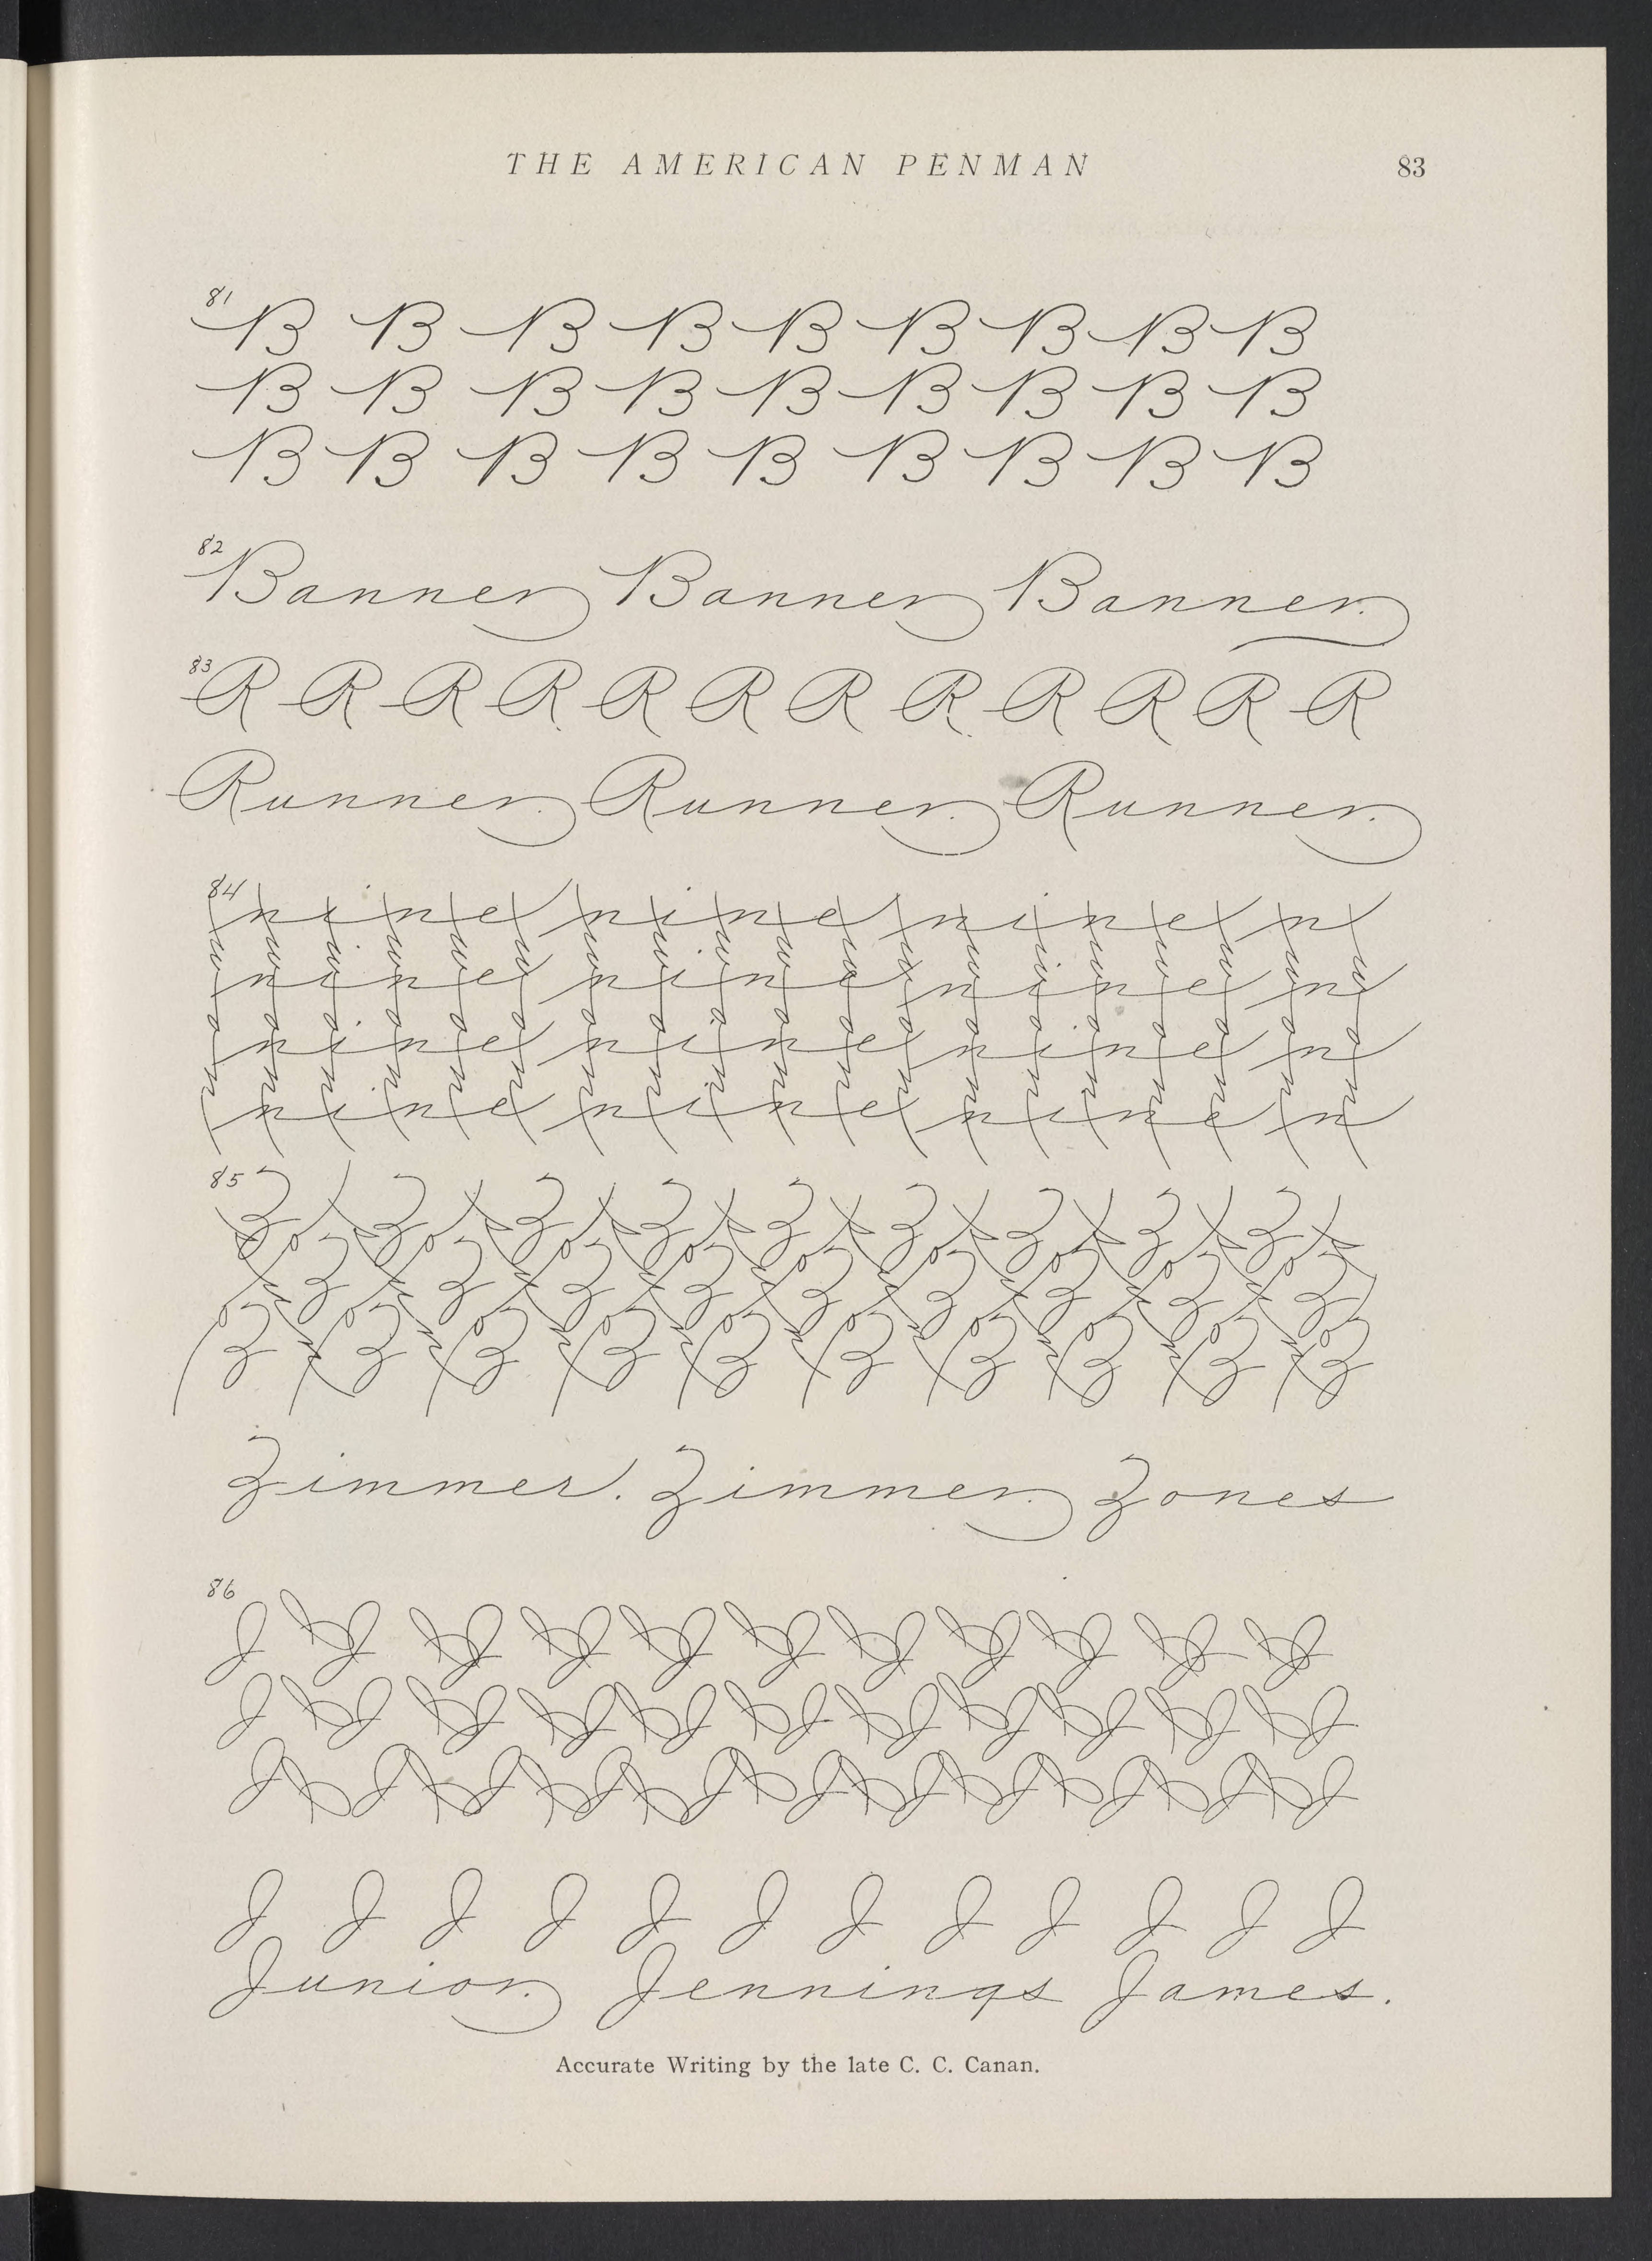 THE AMERICAN PENMAN 83
81
B B B B B B B B B
B B B B B B B B B
B B B B B B B B B
82
Banner Banner Banner.
83
R R R R R R R R R R R R
Runner. Runner. Runner.
84
nine nine nine n
nine nine nine n
nine nine nine n
nine nine nine n
85
Zimmer. Zimmer. Zones
86
J J J J J J J J J J J J
Junior. Jennings James.
Accurate Writing by the late C. C. Canan.